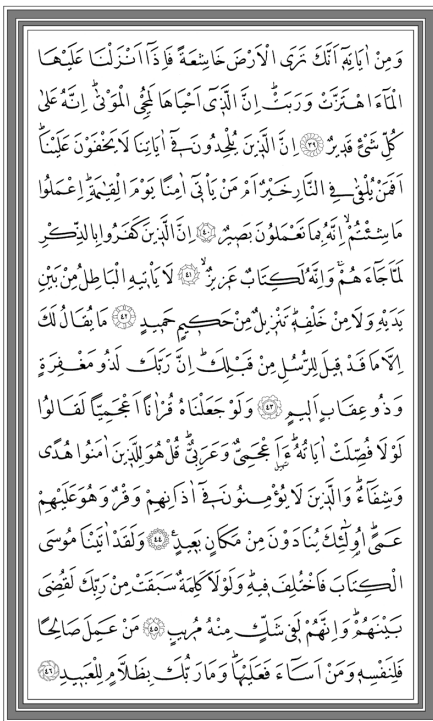 وَمِنْ اٰيَاتِهٖٓ اَنَّكَ تَرَى الْاَرْضَ خَاشِعَةً فَاِذَٓا اَنْزَلْنَا عَلَيْهَا
الْمَٓاءَ اهْتَزَّتْ وَرَبَتْۜ اِنَّ الَّذٖٓي اَحْيَاهَا لَمُحْيِ الْمَوْتٰىۜ اِنَّهُ عَلٰى
كُلِّ شَيْءٍ قَدٖيرٌ ﴿٣٩﴾ اِنَّ الَّذٖينَ يُلْحِدُونَ فٖٓي اٰيَاتِنَا لَا يَخْفَوْنَ عَلَيْنَاۜ
اَفَمَنْ يُلْقٰى فِي النَّارِ خَيْرٌ اَمْ مَنْ يَأْتٖٓي اٰمِنًا يَوْمَ الْقِيٰمَةِۜ اِعْمَلُوا
مَا شِئْتُمْۙ اِنَّهُ بِمَا تَعْمَلُونَ بَصٖيرٌ ﴿٤٠﴾ اِنَّ الَّذٖينَ كَفَرُوا بِالذِّكْرِ
لَمَّا جَٓاءَهُمْۚ وَاِنَّهُ لَكِتَابٌ عَزٖيزٌۙ ﴿٤١﴾ لَا يَأْتٖيهِ الْبَاطِلُ مِنْ بَيْنِ
يَدَيْهِ وَلَا مِنْ خَلْفِهٖۜ تَنْزٖيلٌ مِنْ حَكٖيمٍ حَمٖيدٍ ﴿٤٢﴾ مَا يُقَالُ لَكَ
اِلَّا مَا قَدْ قٖيلَ لِلرُّسُلِ مِنْ قَبْلِكَۜ اِنَّ رَبَّكَ لَذُو مَغْفِرَةٍ
وَذُو عِقَابٍ اَلٖيمٍ ﴿٤٣﴾ وَلَوْ جَعَلْنَاهُ قُرْاٰنًا اَعْجَمِيًّا لَقَالُوا
لَوْلَا فُصِّلَتْ اٰيَاتُهُۜ ءَاَعْجَمِيٌّ وَعَرَبِيٌّۜ قُلْ هُوَ لِلَّذٖينَ اٰمَنُوا هُدًى
وَشِفَٓاءٌۜ وَالَّذٖينَ لَا يُؤْمِنُونَ فٖٓي اٰذَانِهِمْ وَقْرٌ وَهُوَ عَلَيْهِمْ
عَمًىۜ اُو۬لٰٓئِكَ يُنَادَوْنَ مِنْ مَكَانٍ بَعٖيدٍ۟ ﴿٤٤﴾ وَلَقَدْ اٰتَيْنَا مُوسَى
الْكِتَابَ فَاخْتُلِفَ فٖيهِۜ وَلَوْلَا كَلِمَةٌ سَبَقَتْ مِنْ رَبِّكَ لَقُضِيَ
بَيْنَهُمْۜ وَاِنَّهُمْ لَفٖي شَكٍّ مِنْهُ مُرٖيبٍ ﴿٤٥﴾ مَنْ عَمِلَ صَالِحًا
فَلِنَفْسِهٖ وَمَنْ اَسَٓاءَ فَعَلَيْهَاۜ وَمَا رَبُّكَ بِظَلَّامٍ لِلْعَبٖيدِ ﴿٤٦﴾